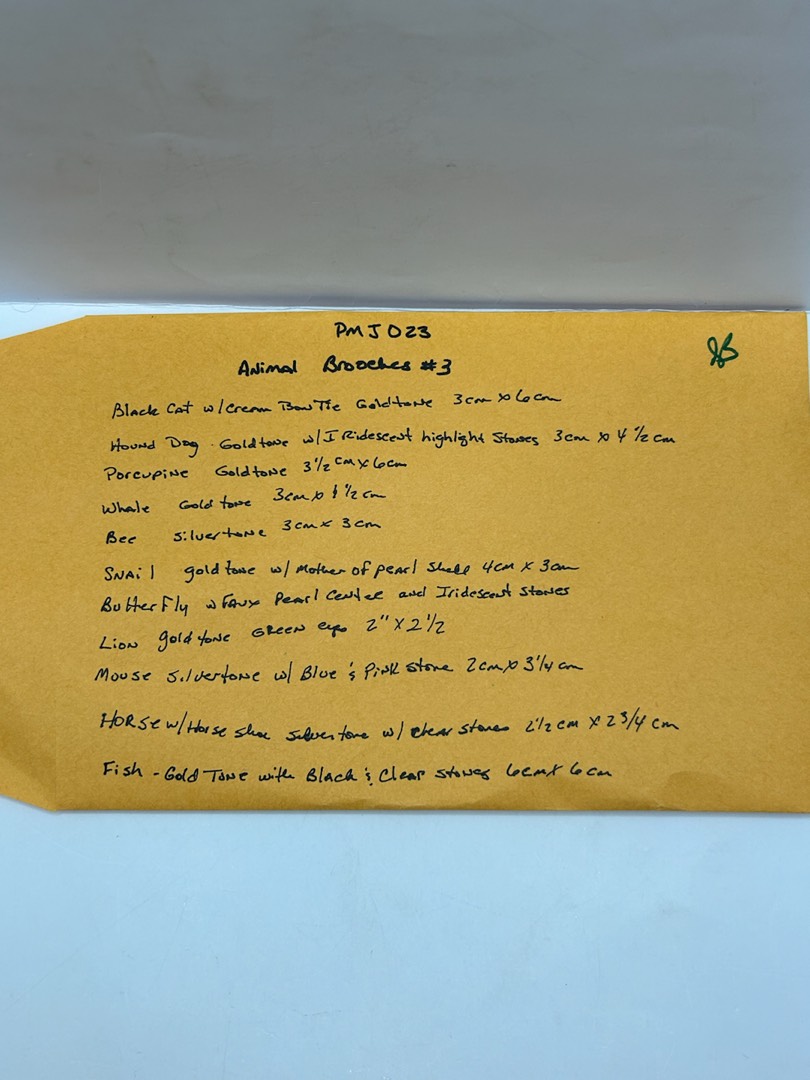 PMJ023
Animal Brooches #3
Black Cat w/cream Bow Tie Goldtone 3cm x 6cm
Hound Dog Goldtone w/ IRidescent highlight Stones 3cm x 4 1/2 cm
Porcupine Goldtone 3 1/2 cm x 6cm
Whale Gold tone 3cm x 1/2 cm
Bee silvertone 3cm x 3cm
Snail goldtone w/ Mother of pearl Shell 4cm x 3cm
Butterfly w Faux Pearl Center and Iridescent stones
Lion goldtone GREEN eyes 2" x 2 1/2
Mouse silvertone w/ Blue & Pink stone 2cm x 3 1/4 cm
HORSE w/ Horse shoe silvertone w/ clear stones 2 1/2 cm x 2 3/4 cm
Fish - Gold Tone with Black & Clear stones 6cm x 6cm